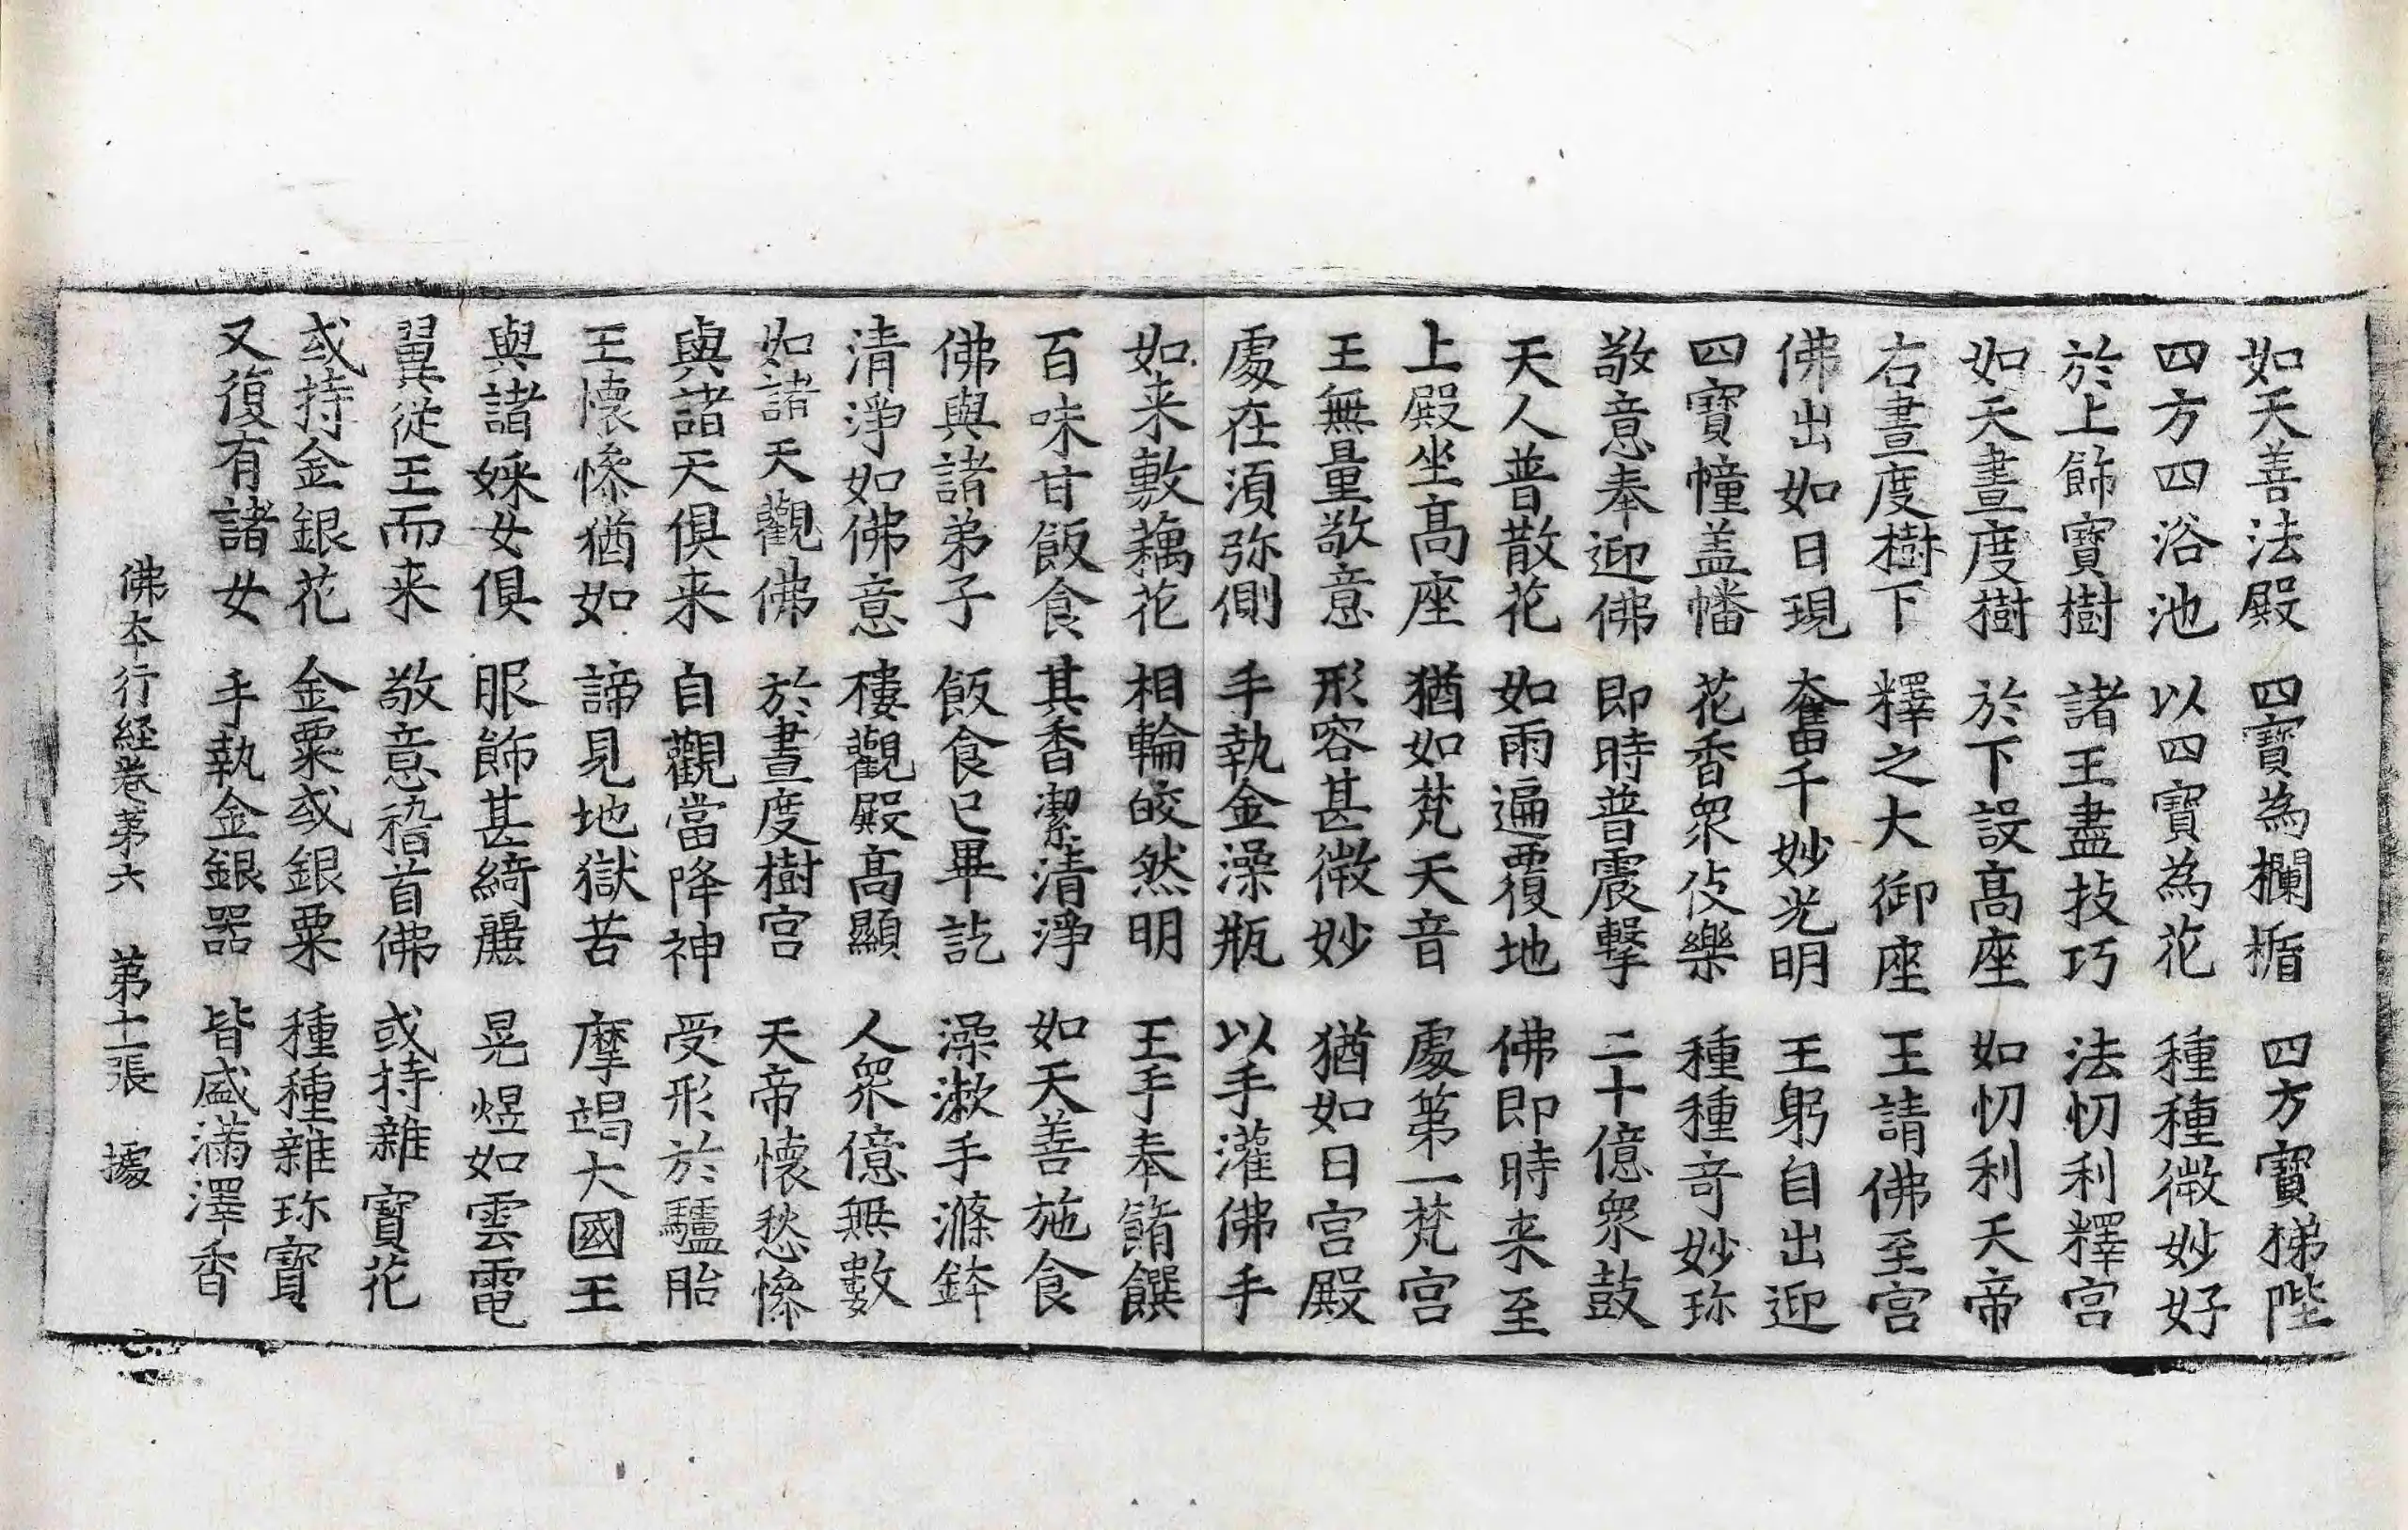 如天善法殿　四寶為欄楯　四方寶梯陛
四方四浴池　以四寶為花　種種微妙好
於上飾寶樹　諸王盡技巧　法忉利釋宮
如天晝度樹　於下設髙座　如忉利天帝
右晝度樹下　釋之大御座　王請佛至宮
佛出如日現　奮千妙光明　王躬自出迎
四寶幢盖幡　花香眾伎樂　種種奇妙珎
敬意奉迎佛　即時普震擊　二十億眾鼓
天人普散花　如雨遍覆地　佛即時来至
上殿坐髙座　猶如梵天音　處第一梵宮
王無量敬意　形容甚微妙　猶如日宮殿
處在須弥側　手執金澡瓶　以手灌佛手
如来敷藕花　相輪皎然明　王手奉餚饌
百味甘飯食　其香潔清淨　如天善施食
佛與諸弟子　飯食已畢訖　澡漱手滌鉢
清淨如佛意　樓觀殿髙顯　人眾億無數
如諸天觀佛　於晝度樹宮　天帝懷愁慘
與諸天俱来　自觀當降神　受形於驢胎
王懷慘猶如　諦見地獄苦　摩竭大國王
與諸婇女俱　服飾甚綺麗　晃煜如雲電
翼從王而来　敬意稽首佛　或持雜寶花
或持金銀花　金粟或銀粟　種種雜珎寶
又復有諸女　手執金銀器　皆盛滿澤香
佛本行経卷第六　第十二張　據